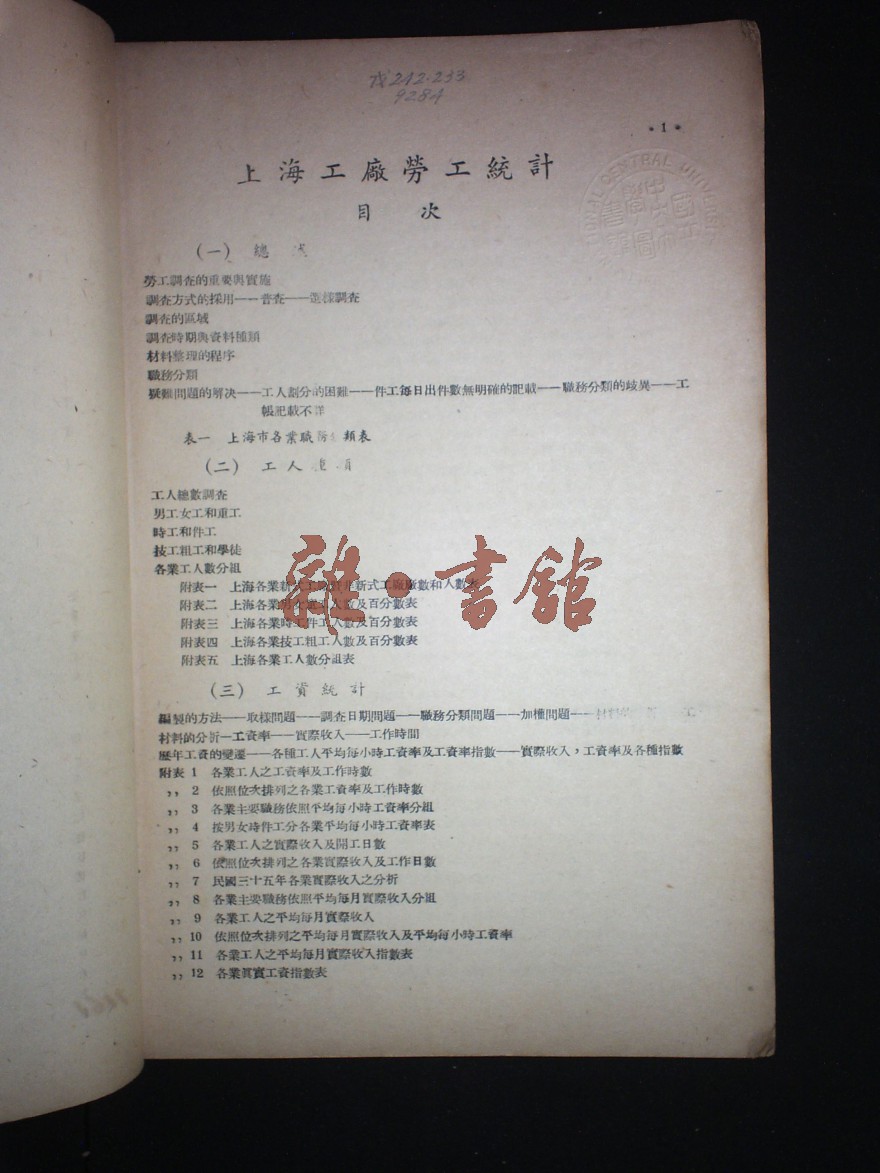 242·233
9284
•1•
NATIONAL CENTRAL UNIVERSITY
上海工廠勞工統計
目 次
(一) 總
勞工調查的重要與實施
調查方式的採用——普查——選樣調查
調查的區域
調查時期與資料種類
材料整理的程序
職務分類
疑難問題的解決——工人劃分的困難——件工每日出件數無明確的記載——職務分類的歧異——工
帳記載不詳
表一 上海市各業職 類表
(二) 工人
工人總數調查
男工女工和童工
時工和件工
技工粗工和學徒
各業工人數分組
附表一 上海各業新式工廠 非新式工廠廠數和人數表
附表二 上海各業男女童工人數及百分數表
附表三 上海各業時工件工人數及百分數表
附表四 上海各業技工粗工人數及百分數表
附表五 上海各業工人數分組表
(三) 工資統計
編製的方法——取樣問題——調查日期問題——職務分類問題——加權問題——材料的
材料的分析—工資率——實際收入——工作時間
歷年工資的變遷——各種工人平均每小時工資率及工資率指數——實際收入，工資率及各種指數
附表 1 各業工人之工資率及工作時數
,, 2 依照位次排列之各業工資率及工作時數
,, 3 各業主要職務依照平均每小時工資率分組
,, 4 按男女時件工分各業平均每小時工資率表
,, 5 各業工人之實際收入及開工日數
,, 6 依照位次排列之各業實際收入及工作日數
,, 7 民國三十五年各業實際收入之分析
,, 8 各業主要職務依照平均每月實際收入分組
,, 9 各業工人之平均每月實際收入
,, 10 依照位次排列之平均每月實際收入及平均每小時工資率
,, 11 各業工人之平均每月實際收入指數表
,, 12 各業眞實工資指數表
雜·書館